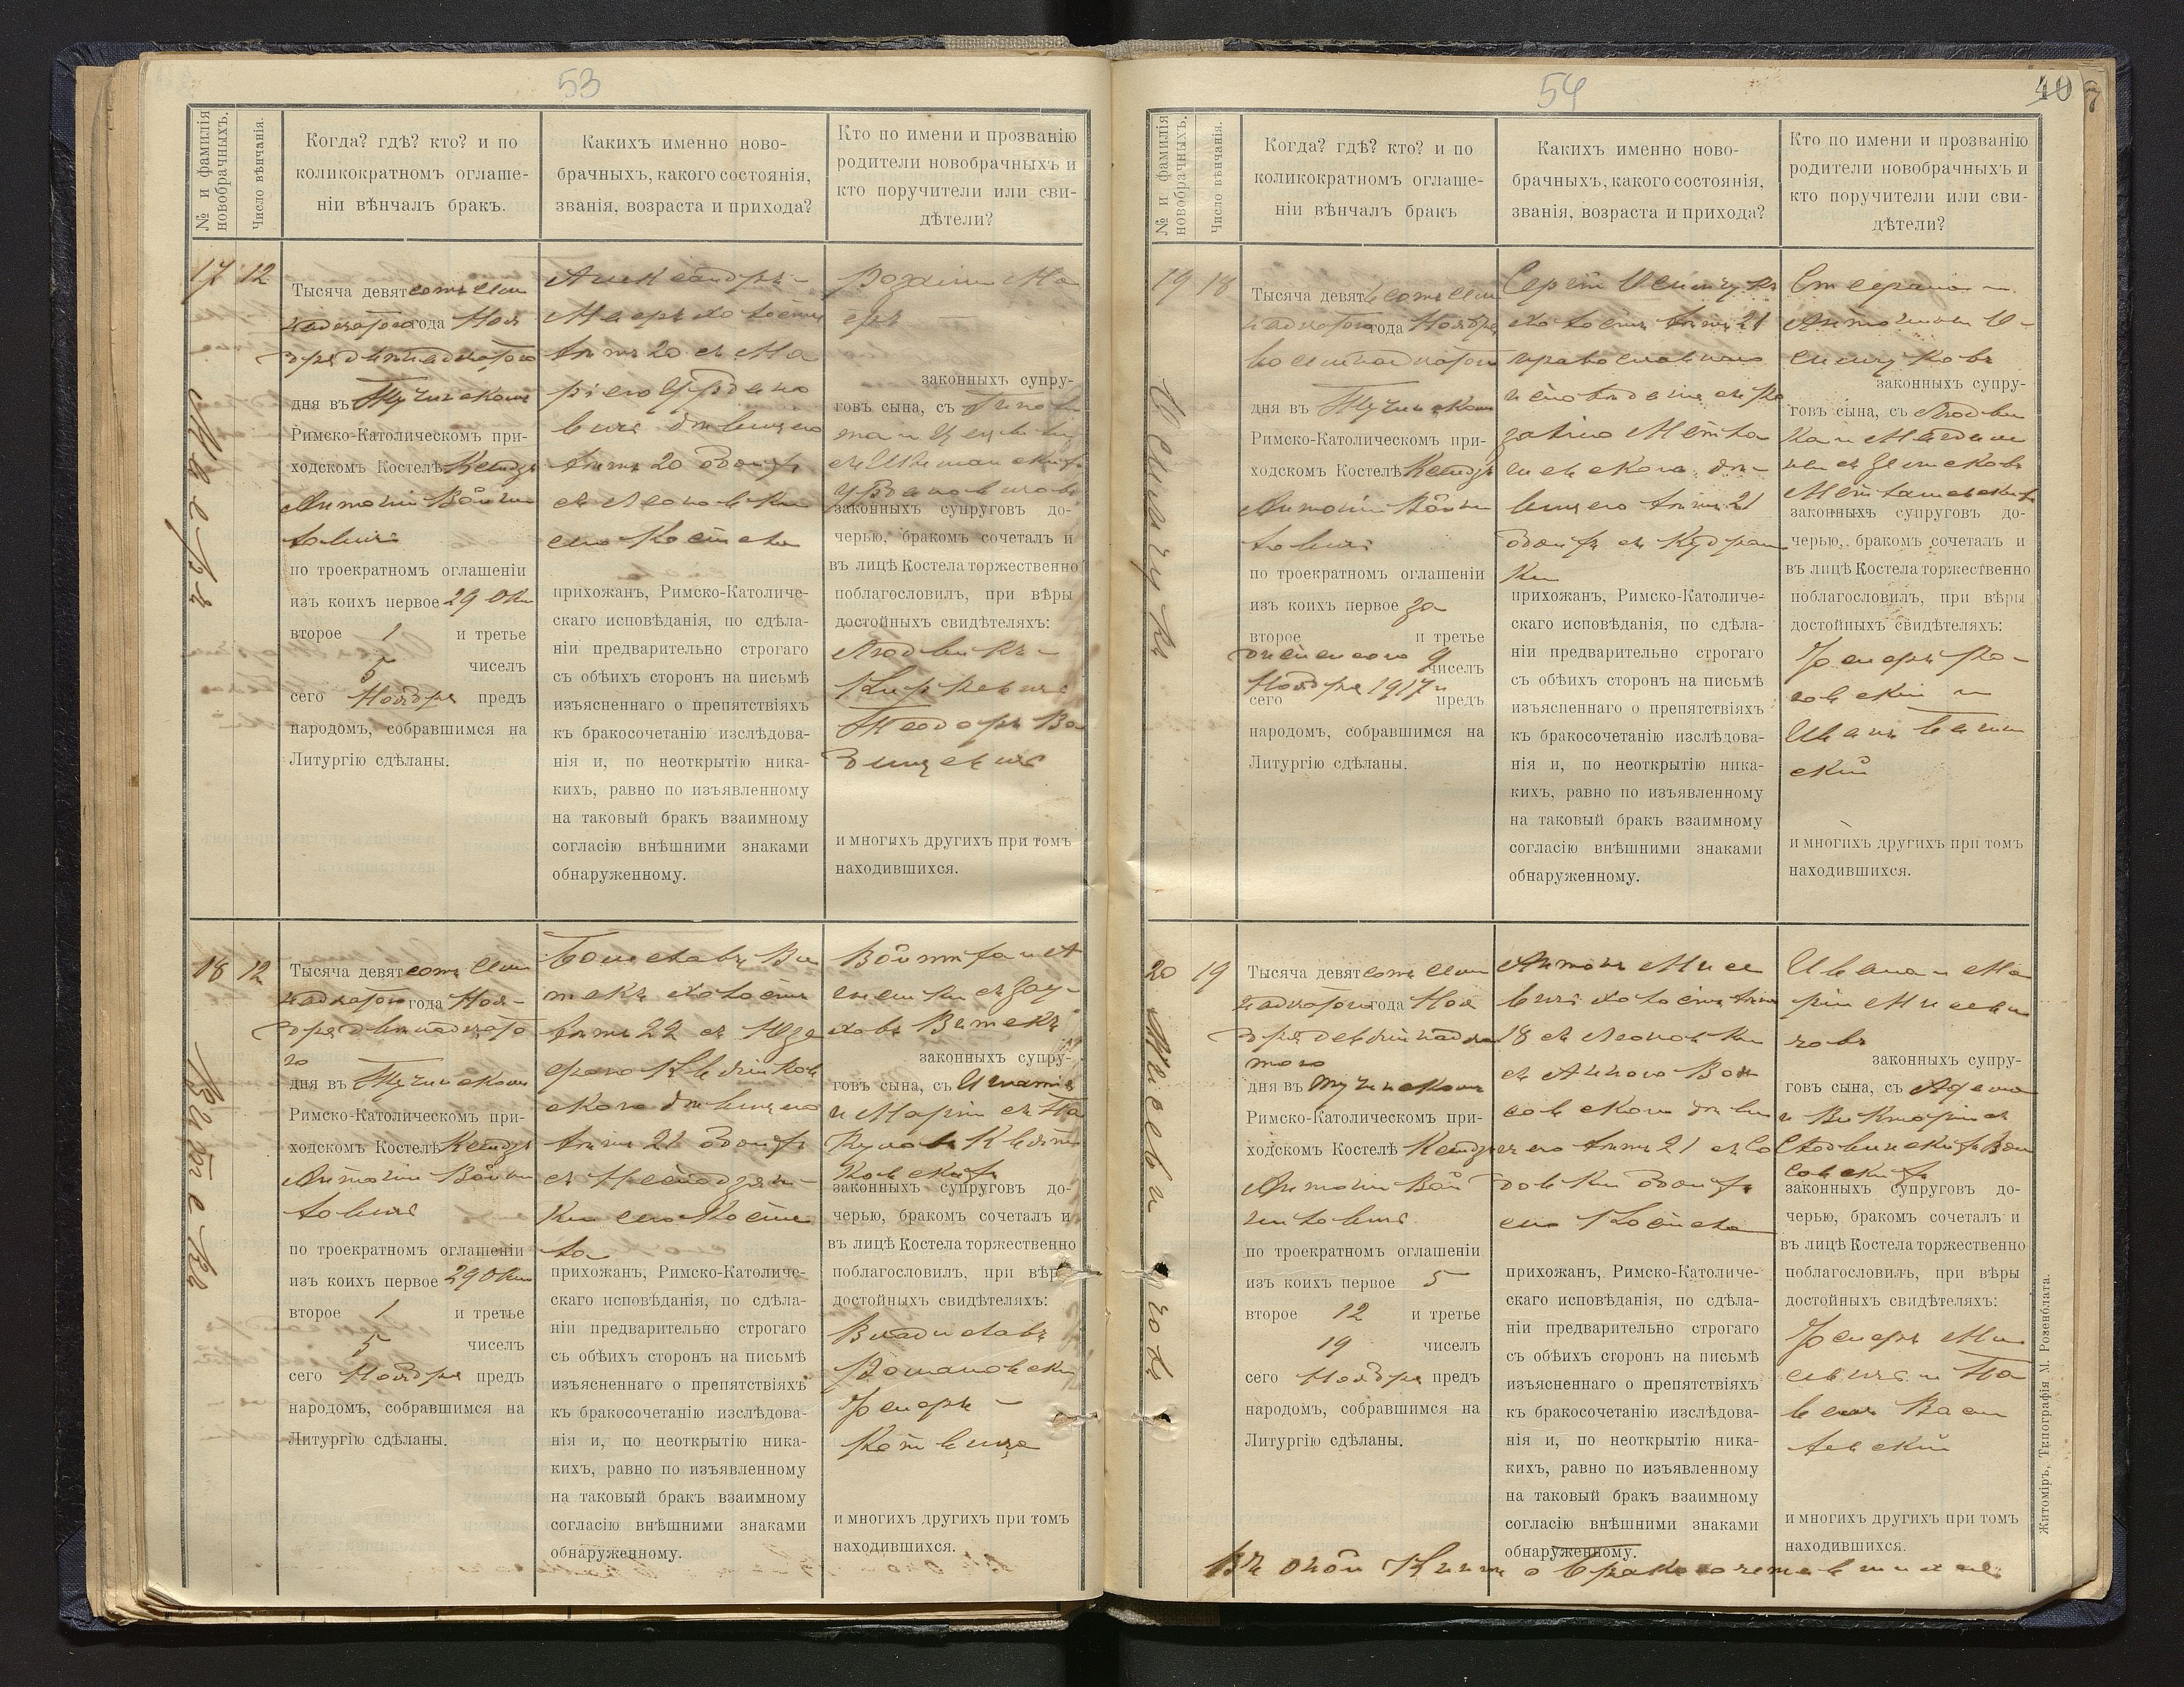 53
№ и фамилія новобрачныхъ.
Число вѣнчанія.
Когда? гдѣ? кто? и по
коликократномъ оглаше-
ніи вѣнчалъ бракъ.
Какихъ именно ново-
брачныхъ, какого состоянія,
званія, возраста и прихода?
Кто по имени и прозванію
родители новобрачныхъ и
кто поручители или сви-
дѣтели?
17
12
Тысяча девятсотъ семь
надцатого года Ноя
бря двѣнадцатого
дня въ Тучинскомъ
Римско-Католическомъ при-
ходскомъ Костелѣ Ксендзъ
Антоній Войти
ловичъ
по троекратномъ оглашеніи
изъ коихъ первое 29 Ок
второе 1 и третье
5 чиселъ
сего Ноября предъ
народомъ, собравшимся на
Литургію сдѣланы.
Александръ
Маеръ холостъ
лѣтъ 20 съ Ма
ріею Урбано
вичъ дѣвицею
лѣтъ 20 обоихъ
съ Леоновки
сего Костела
прихожанъ, Римско-Католиче-
скаго исповѣданія, по сдѣла-
ніи предварительно строгаго
съ обѣихъ сторонъ на письмѣ
изъясненнаго о препятствіяхъ
къ бракосочетанію изслѣдова-
нія и, по неоткрытію ника-
кихъ, равно по изъявленному
на таковый бракъ взаимному
согласію внѣшними знаками
обнаруженному.
Розаліи Ма
еръ
законныхъ супру-
говъ сына, съ
Урбановичовъ
законныхъ супруговъ до-
черью, бракомъ сочеталъ и
въ лицѣ Костела торжественно
поблагословилъ, при вѣры
достойныхъ свидѣтеляхъ:
Людвикъ
Теодоръ
и многихъ другихъ при томъ
находившихся.
18
12
Тысяча девятсотъ семь
надцатого года Ноя-
бря двѣнадцато
го
дня въ Тучинскомъ
Римско-Католическомъ при-
ходскомъ Костелѣ Ксендзъ
Антоній Войти
ловичъ
по троекратномъ оглашеніи
изъ коихъ первое 29 Ок
второе 1 и третье
5 чиселъ
сего Ноября предъ
народомъ, собравшимся на
Литургію сдѣланы.
Болеславъ Ви
текъ холостъ
лѣтъ 22 съ Юзе
фою Квятков
скою дѣвицею
лѣтъ 21 обоихъ
сего Косте
ла
прихожанъ, Римско-Католиче-
скаго исповѣданія, по сдѣла-
ніи предварительно строгаго
съ обѣихъ сторонъ на письмѣ
изъясненнаго о препятствіяхъ
къ бракосочетанію изслѣдова-
нія и, по неоткрытію ника-
кихъ, равно по изъявленному
на таковый бракъ взаимному
согласію внѣшними знаками
обнаруженному.
Войтѣха и А
Витекъ
законныхъ супру-
говъ сына, съ Игнатія
и Маріи съ Па
Квят
ковскихъ
законныхъ супруговъ до-
черью, бракомъ сочеталъ и
въ лицѣ Костела торжественно
поблагословилъ, при вѣр
достойныхъ свидѣтеляхъ:
Владиславъ
Романовскій
и многихъ другихъ при томъ
находившихся.
Маеръ
Витекъ
54
40
7
№ и фамилія новобрачныхъ.
Число вѣнчанія.
Когда? гдѣ? кто? и по
коликократномъ оглаше-
ніи вѣнчалъ бракъ
Какихъ именно ново-
брачныхъ, какого состоянія,
званія, возраста и прихода?
Кто по имени и прозванію
родители новобрачныхъ и
кто поручители или сви-
дѣтели?
19
18
Тысяча девятьсотъ семь
надцатого года Ноября
восемнадцатого
дня въ Тучинскомъ
Римско-Католическомъ при-
ходскомъ Костелѣ Ксендзъ
Антоній Войти
ловичъ
по троекратномъ оглашеніи
изъ коихъ первое за
второе и третье
чиселъ
Ноября 1917 г
сего предъ
народомъ, собравшимся на
Литургію сдѣланы.
Сергій
холостъ лѣтъ 21
православного
исповѣданія съ Ро
заліею
дѣ-
вицею лѣтъ 21
обоихъ съ
прихожанъ, Римско-Католиче-
скаго исповѣданія, по сдѣла-
ніи предварительно строгаго
съ обѣихъ сторонъ на письмѣ
изъясненнаго о препятствіяхъ
къ бракосочетанію изслѣдова-
нія и, по неоткрытію ника-
кихъ, равно по изъявленному
на таковый бракъ взаимному
согласію внѣшними знаками
обнаруженному.
законныхъ супру-
говъ сына, съ Людви
ка и
законныхъ супруговъ до-
черью, бракомъ сочеталъ и
въ лицѣ Костела торжественно
поблагословилъ, при вѣры
достойныхъ свидѣтеляхъ:
Иванъ
и многихъ другихъ при томъ
находившихся.
20
19
Тысяча девятсотъ семь
надцатого года Ноя
бря девятнадца
того
дня въ Тучинскомъ
Римско-Католическомъ при-
ходскомъ Костелѣ Ксендзъ
Антоній Вой
тиловичъ
по троекратномъ оглашеніи
изъ коихъ первое 5
второе 12 и третье
19 чиселъ
сего Ноября предъ
народомъ, собравшимся на
Литургію сдѣланы.
Антонъ Мисе
вичъ холостъ лѣтъ
18 съ Леоновки
дѣви
цею лѣтъ 21
обоихъ
сего Костела
прихожанъ, Римско-Католиче-
скаго исповѣданія, по сдѣла-
ніи предварительно строгаго
съ обѣихъ сторонъ на письмѣ
изъясненнаго о препятствіяхъ
къ бракосочетанію изслѣдова-
нія и, по неоткрытію ника-
кихъ, равно по изъявленному
на таковый бракъ взаимному
согласію внѣшними знаками
обнаруженному.
Ивана и Ма
ріи Мисеви
човъ
законныхъ супру-
говъ сына, съ Адама
и Викторіи съ
законныхъ супруговъ до-
черью, бракомъ сочеталъ и
въ лицѣ Костела торжественно
поблагословилъ, при вѣры
достойныхъ свидѣтеляхъ:
и многихъ другихъ при томъ
находившихся.
Въ оной Книгѣ о бракосочетавшихся
Житоміръ, Типографія М. Розенблата.